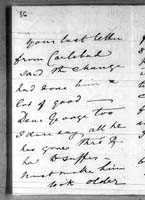 36
Your last letter
from Carlsbad
said the change
had done him a
lot of good —
Dear George too
I dare say all he
has gone thro' &
has to suffer —
must make him
look older